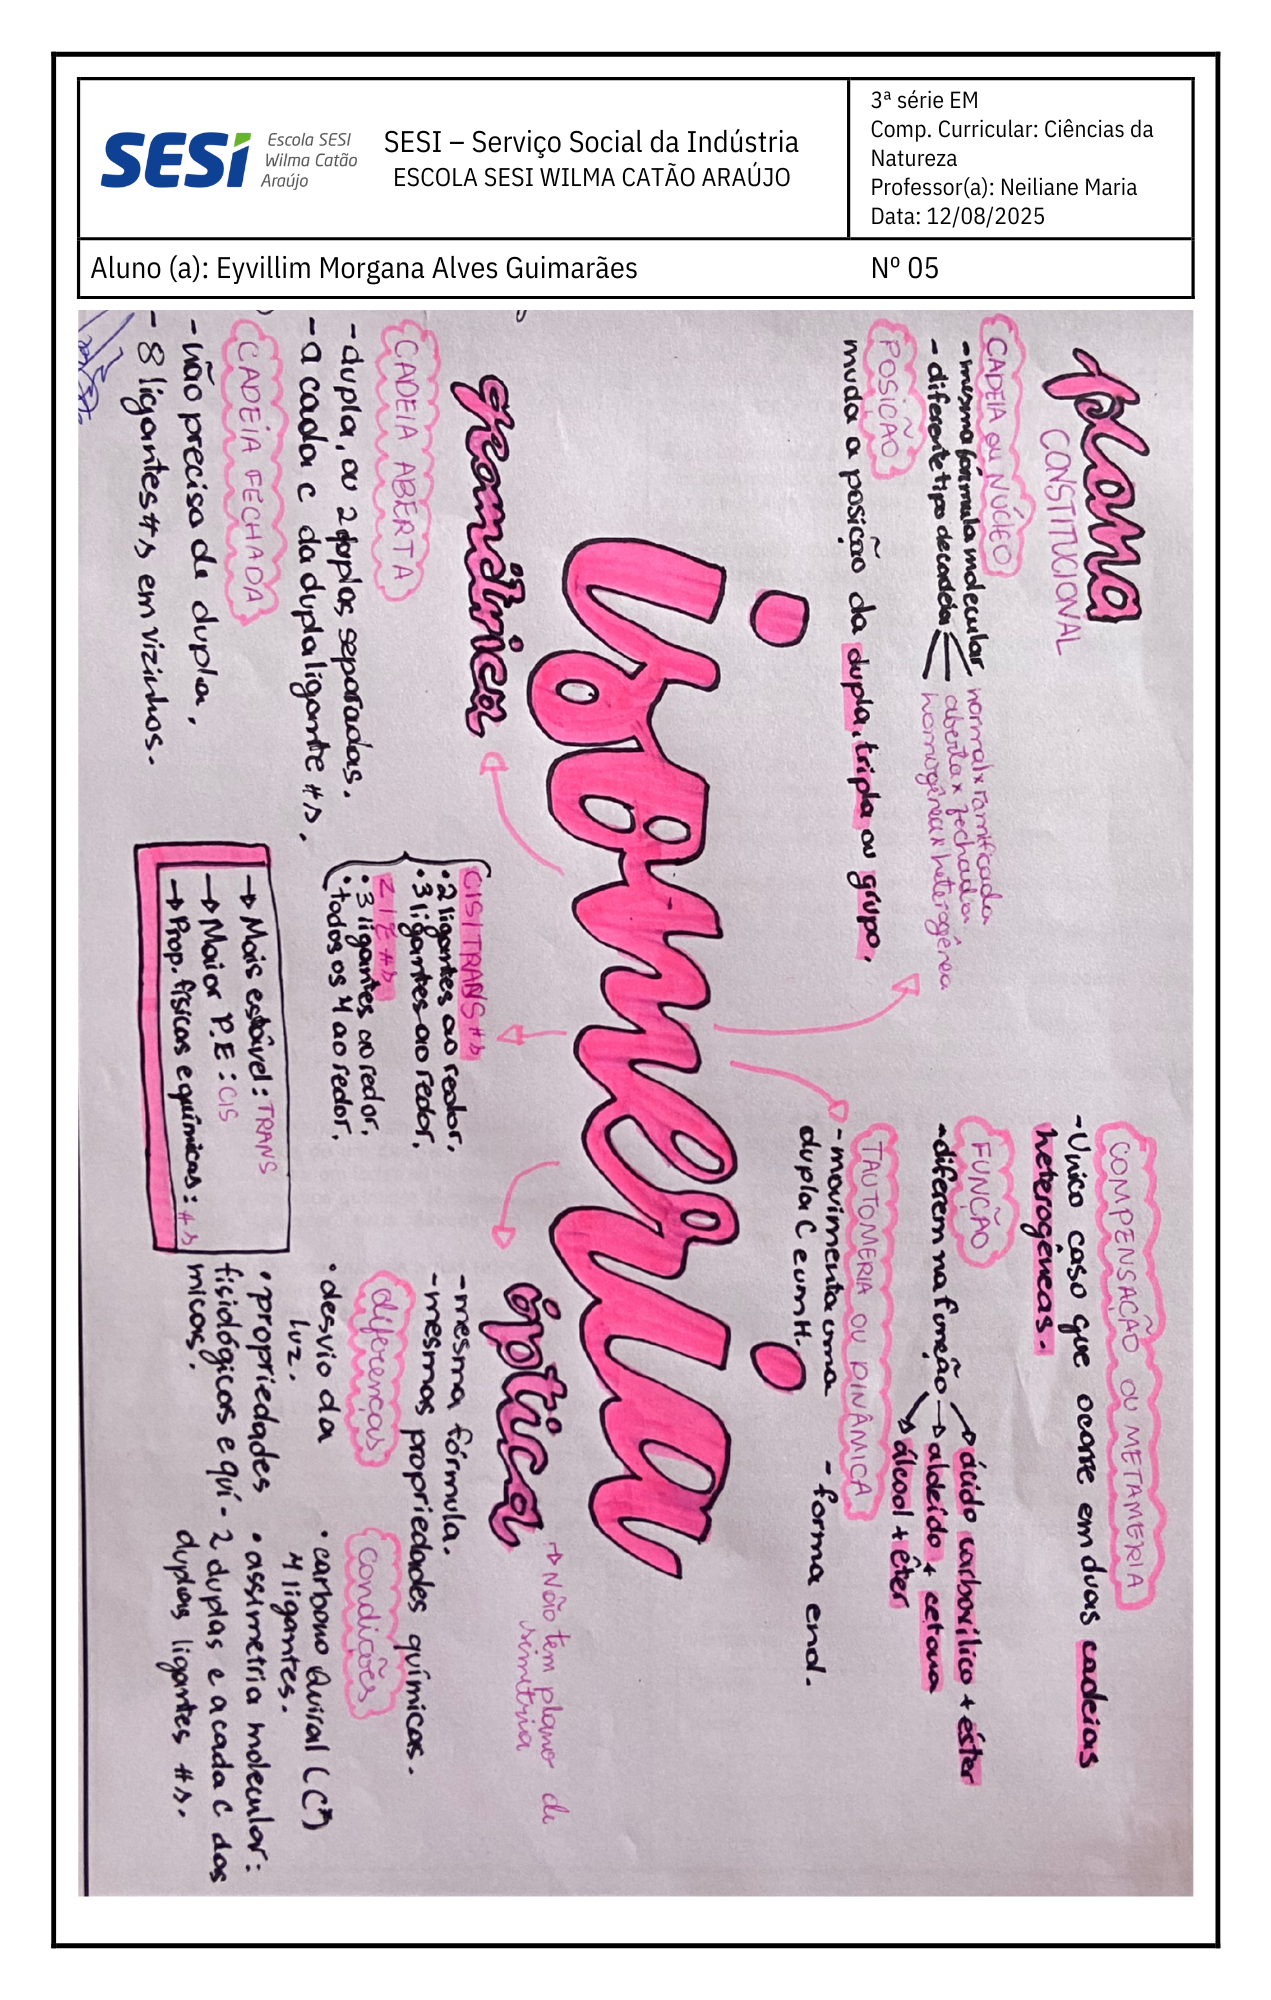 SESI
Escola SESI
Wilma Catão
Araújo
SESI – Serviço Social da Indústria
ESCOLA SESI WILMA CATÃO ARAÚJO
3ª série EM
Comp. Curricular: Ciências da
Natureza
Professor(a): Neiliane Maria
Data: 12/08/2025
Aluno (a): Eyvillim Morgana Alves Guimarães
Nº 05
plana
CONSTITUCIONAL
CADEIA ou NÚCLEO
-mesma fórmula molecular
- diferente tipo de cadeia
normal x ramificada
aberta x fechada
homogênea x heterogênea
POSIÇÃO
muda a posição da dupla, tripla ou grupo.
COMPENSAÇÃO ou METAMERIA
-Unico caso que ocorre em duas cadeias
heterogêneas.
FUNÇÃO
-diferem na função
→ ácido carboxílico + éster
→ aldeído + cetona
→ álcool + éter
TAUTOMERIA ou DINÂMICA
- movimenta uma
dupla C e um H.
- forma enol.
isomeria
geométrica
CADEIA ABERTA
- dupla, ou 2 duplas separadas.
- a cada c da dupla ligante ≠s.
CADEIA FECHADA
- não precisa de dupla,
- 8 ligantes ≠s em vizinhos.
CIS/TRANS ≠s
• 2 ligantes ao redor.
• 3 ligantes ao redor.
Z/E ≠s
• 3 ligantes ao redor.
• todos os 4 ao redor.
→ Mais estável: TRANS
→ Maior P.E: CIS
→ Prop. físicas e químicas: ≠s
óptica
→ Não tem plano de
simetria
- mesma fórmula.
- mesmas propriedades químicas.
diferenças
• desvio da
luz.
• propriedades
fisiológicos e quí-
micas.
condições
• carbono Quiral (C*)
4 ligantes.
• assimetria molecular:
2 duplas e a cada C dos
duplas ligantes ≠s.